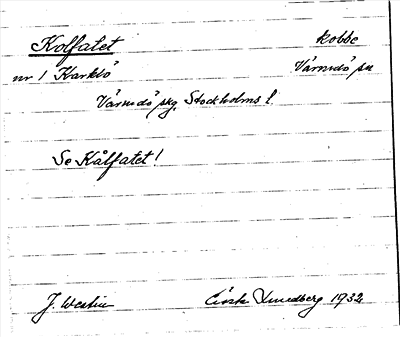 Kolfatet kobbe
nr 1 Karklö Värmdö sn
Värmdö skg. Stockholms l.
Se Kålfatet!
J. Westin Gösta Lundberg 1932